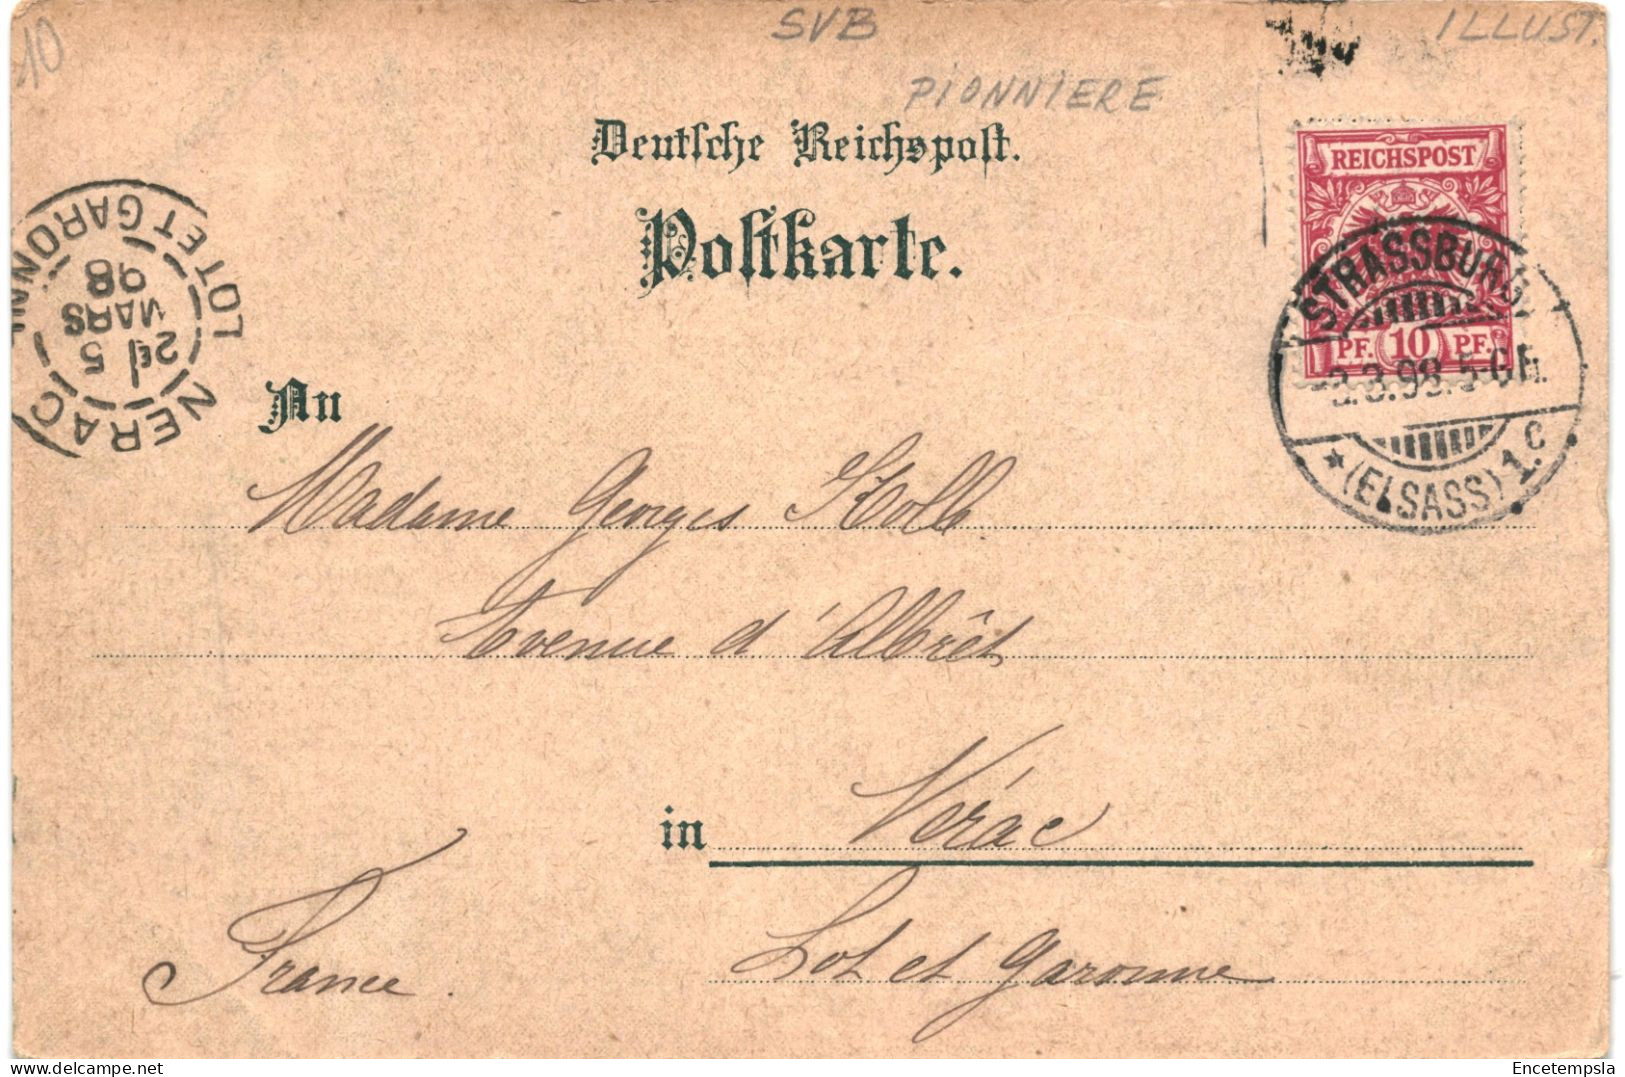 10
SVB
ILLUST.
PIONNIERE
Deutsche Reichspost.
Postkarte.
REICHSPOST
PF. 10 PF.
STRASSBURG
3.3.98.5-6N.
★ (ELSASS) 1.c
NERAC
2E/
5
MARS
98
LOT ET GARONNE
An
Madame Georges Kolb
Avenue d'Albrêt
in Nérac
France.
Lot et Garonne
Encetempsla